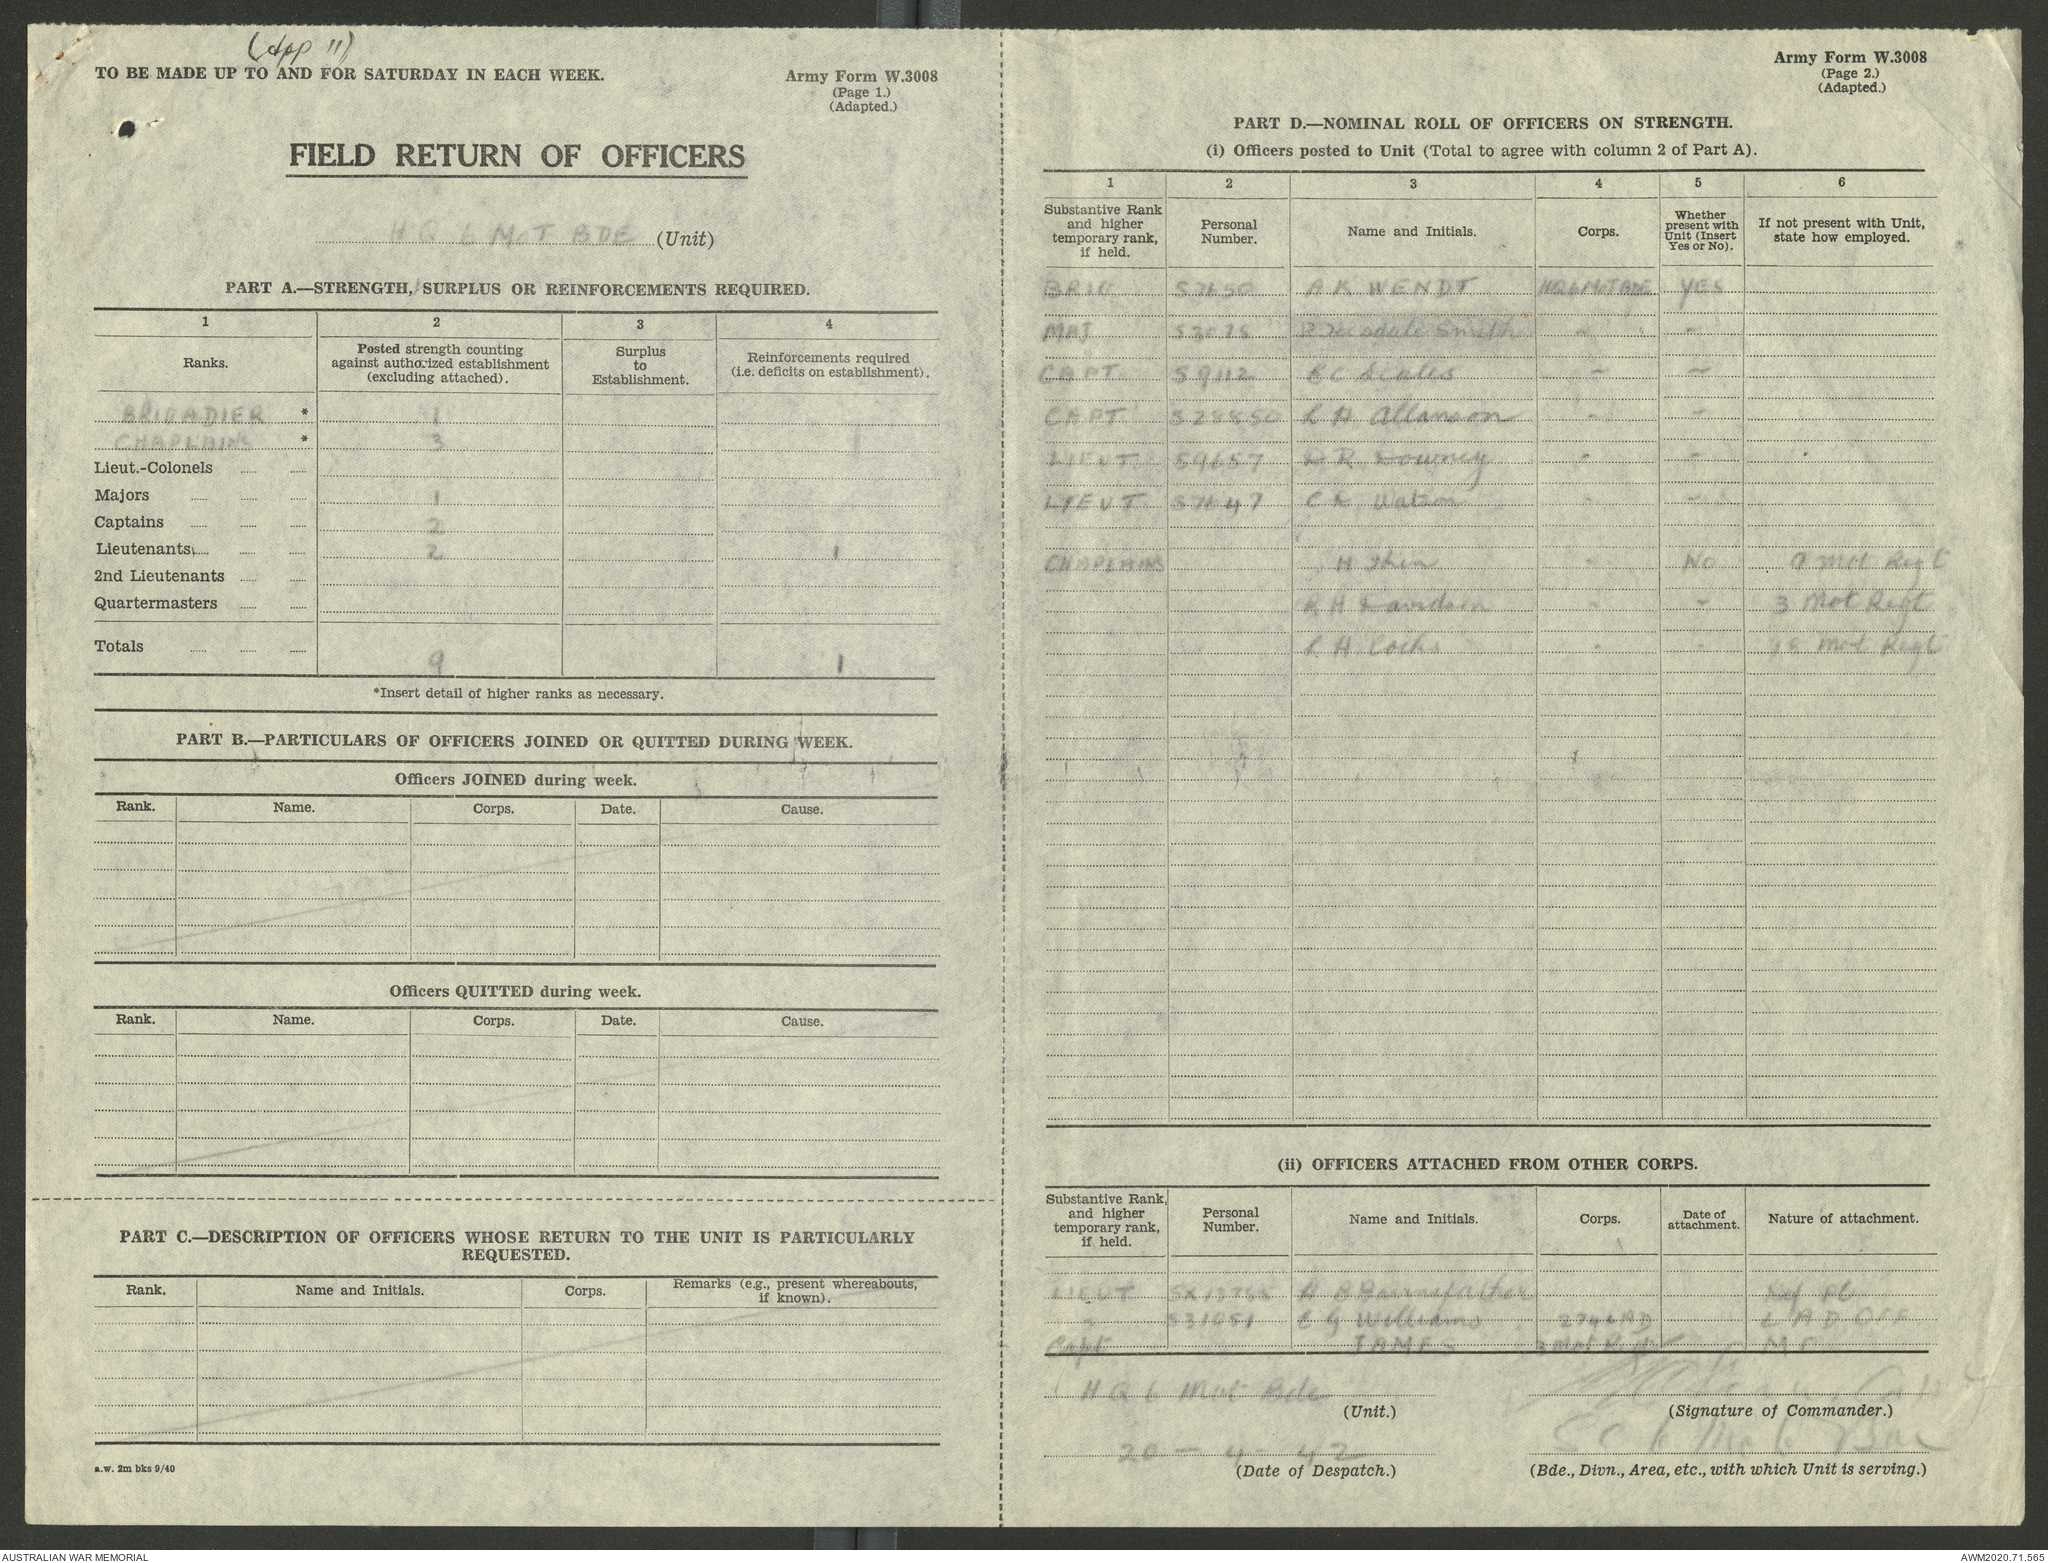 (App 11)
TO BE MADE UP TO AND FOR SATURDAY IN EACH WEEK.
Army Form W.3008
(Page 1.)
(Adapted.)
FIELD RETURN OF OFFICERS
H Q 6 MOT BDE (Unit)
PART A.—STRENGTH, SURPLUS OR REINFORCEMENTS REQUIRED.
1 2 3 4
Ranks. Posted strength counting against authorized establishment (excluding attached). Surplus to Establishment. Reinforcements required (i.e. deficits on establishment).
BRIGADIER * 1
CHAPLAINS * 3
Lieut.-Colonels
Majors 1
Captains 2
Lieutenants 2 1
2nd Lieutenants
Quartermasters
Totals 9 1
*Insert detail of higher ranks as necessary.
PART B.—PARTICULARS OF OFFICERS JOINED OR QUITTED DURING WEEK.
Officers JOINED during week.
Rank. Name. Corps. Date. Cause.
Officers QUITTED during week.
Rank. Name. Corps. Date. Cause.
PART C.—DESCRIPTION OF OFFICERS WHOSE RETURN TO THE UNIT IS PARTICULARLY
REQUESTED.
Rank. Name and Initials. Corps. Remarks (e.g., present whereabouts, if known).
a.w. 2m bks 9/40
Army Form W.3008
(Page 2.)
(Adapted.)
PART D.—NOMINAL ROLL OF OFFICERS ON STRENGTH.
(i) Officers posted to Unit (Total to agree with column 2 of Part A).
1 2 3 4 5 6
Substantive Rank and higher temporary rank, if held. Personal Number. Name and Initials. Corps. Whether present with Unit (Insert Yes or No). If not present with Unit, state how employed.
BRIG S7650 A K WENDT HQ 6 MOT BDE YES
MAJ Smith
CAPT S9112
CAPT S28850 Allanson
LIEUT S9657 R Downey
LIEUT S7647 Watson
CHAPLAINS H NO 9 Mot Regt
R H Davidson 3 Mot Regt
H Cocks 18 Mot Regt
(ii) OFFICERS ATTACHED FROM OTHER CORPS.
Substantive Rank, and higher temporary rank, if held. Personal Number. Name and Initials. Corps. Date of attachment. Nature of attachment.
LIEUT Bairnsfather
" S31051 E G Williams 27 LAD L A D OFF
Capt JAMES 3 Mot Regt M O
H Q 6 Mot Bde
(Unit.)
(Signature of Commander.)
20 - 4 - 42
(Date of Despatch.)
(Bde., Divn., Area, etc., with which Unit is serving.)
AUSTRALIAN WAR MEMORIAL
AWM2020.71.565